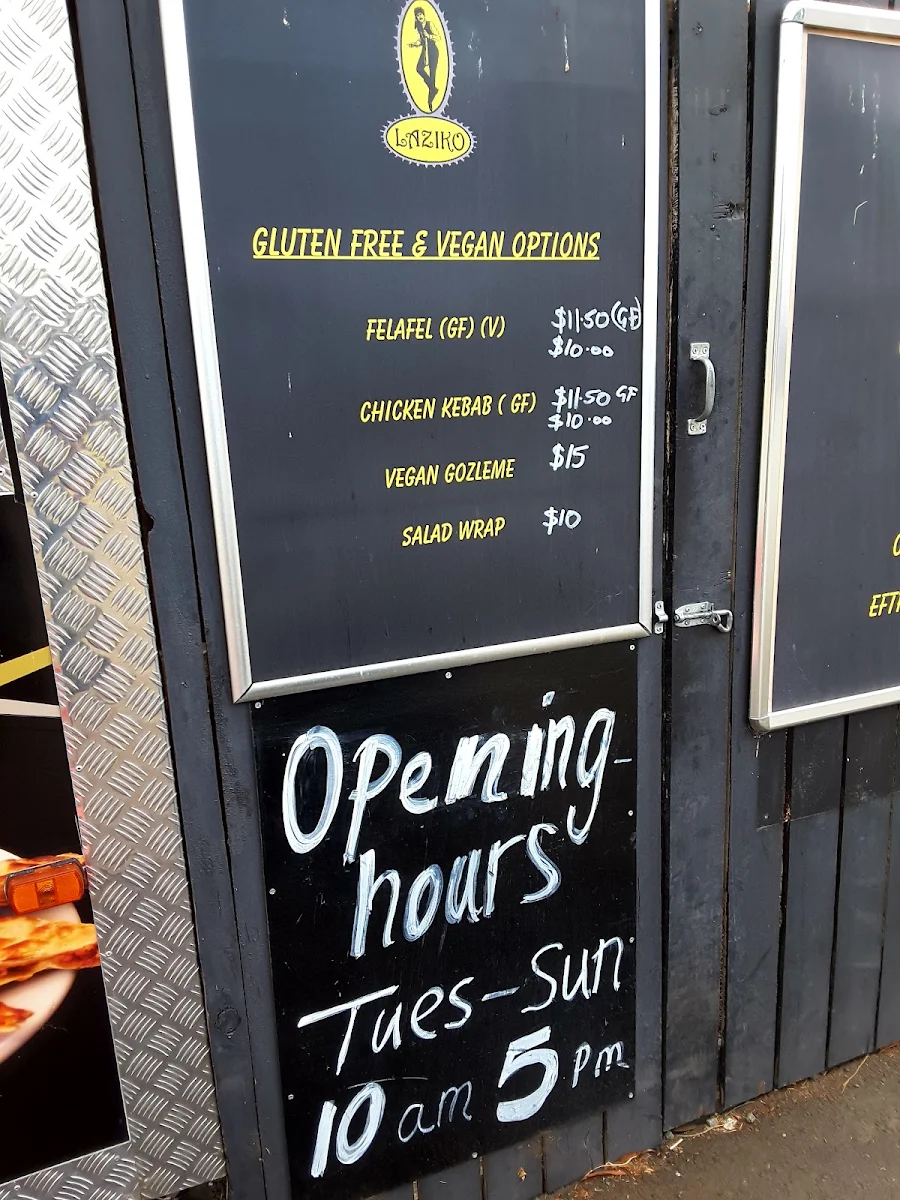 LAZIKO
GLUTEN FREE & VEGAN OPTIONS
FELAFEL (GF) (V) $11.50 (GF)
$10.00
CHICKEN KEBAB ( GF) $11.50 GF
$10.00
VEGAN GOZLEME $15
SALAD WRAP $10
Opening
hours
Tues-Sun
10 am 5 pm